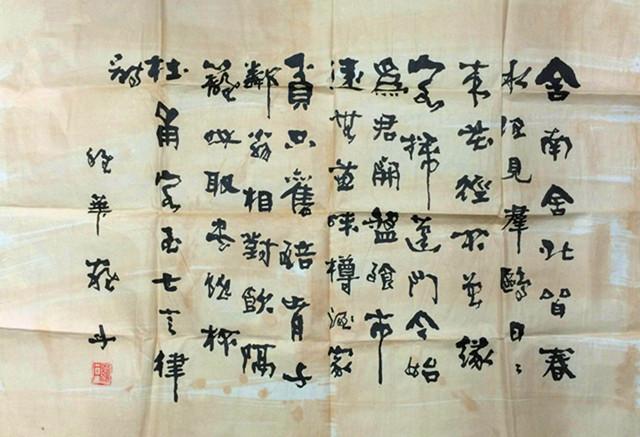 舍南舍北皆春
水但見羣鷗日〻
來花徑不曾緣
客掃蓬門今始
爲君開盤飧市
遠無兼味樽酒家
貧只舊醅肯与
鄰翁相對飲隔
籬呼取盡餘杯
杜甫客至七言律
詩
華